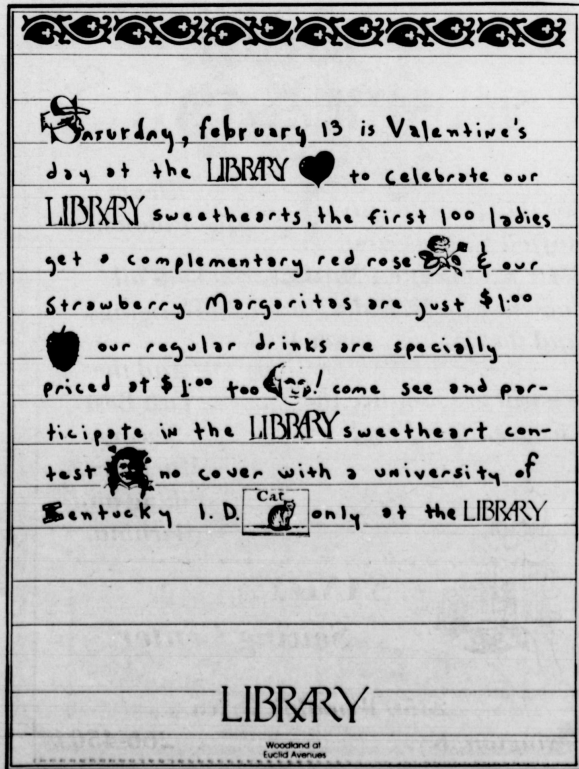 Saturday, february 13 is Valentine's
day at the LIBRARY to celebrate our
LIBRARY sweethearts, the first 100 ladies
get a complementary red rose & our
Strawberry Margaritas are just $1.00
our regular drinks are specially
priced at $1.00 too! come see and par-
ticipate in the LIBRARY sweetheart con-
test no cover with a university of
Kentucky I.D. Cat only at the LIBRARY
LIBRARY
Woodland at
Euclid Avenues